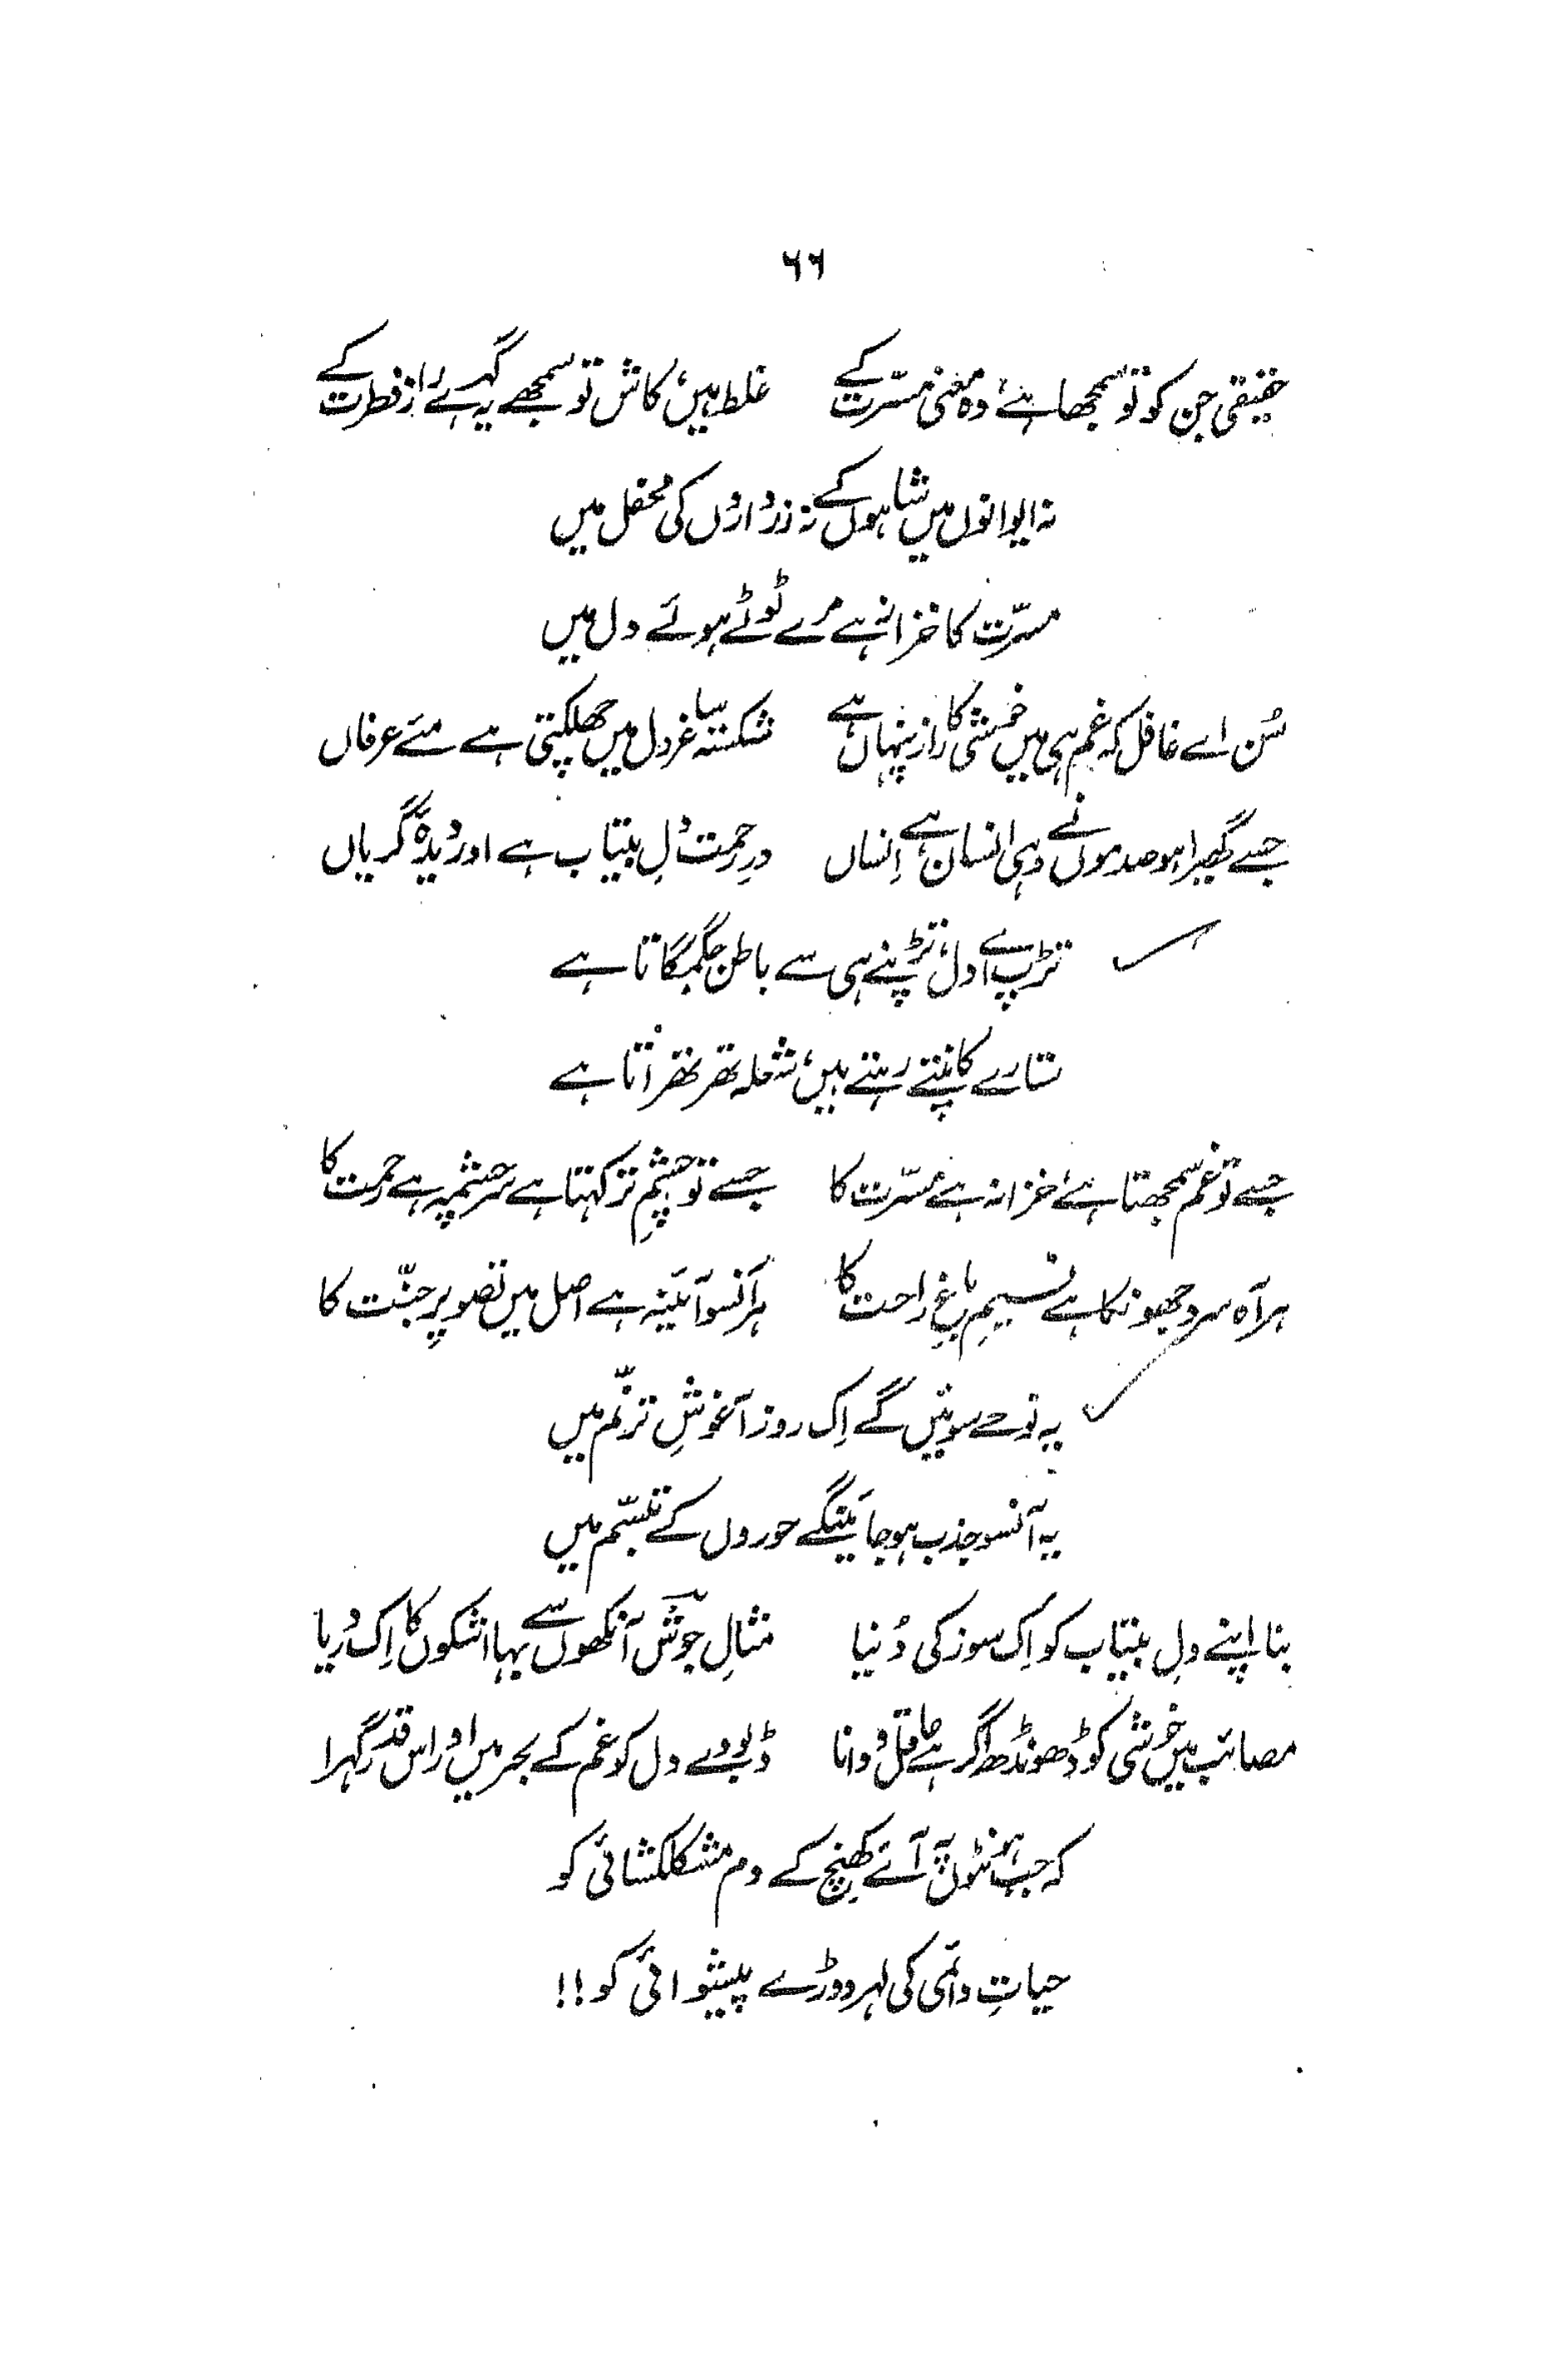 ۶۶
حقیقی جن کو تو سمجھا ہے، وہ معنی مسرّت کے    غلط ہیں، کاش تو سمجھے یہ گہرے راز فطرت کے
نہ ایوانوں میں شاہوں کے نہ زرداروں کی محفل میں
مسرّت کا خزانہ ہے مرے ٹوٹے ہوئے دل میں
سُن اے غافل کہ غم ہی میں خوشی کا راز پنہاں ہے    شکستہ ساغرِ دل میں چھلکتی ہے مئے عرفاں
جسے گھیرا ہو صدموں نے وہی انسان ہے اِنساں    درِ رحمت دلِ بیتاب ہے اور دیدۂ گریاں
تڑپ اے دل، تڑپنے ہی سے باطن جگمگاتا ہے
ستارے کانپتے رہتے ہیں، شعلہ تھرتھراتا ہے
جسے تو غم سمجھتا ہے، خزانہ ہے مسرّت کا    جسے تو چشمِ تر کہتا ہے سرچشمہ ہے رحمت کا
ہر آہِ سرد جھونکا ہے نسیمِ باغِ راحت کا    ہر آنسو آئینہ ہے اصل میں تصویرِ جنّت کا
یہ نوحے سوئیں گے اِک روز آغوشِ ترنّم میں
یہ آنسو جذب ہوجائینگے حوروں کے تبسّم میں
بنا اپنے دلِ بیتاب کو اِک سوز کی دُنیا    مثالِ جوشؔ آنکھوں سے بہا اشکوں کا اِک دریا
مصائب میں خوشی کو ڈھونڈھ اگر ہے عاقل و دانا    ڈبو دے دل کو غم کے بحر میں اور اس قدر گہرا
کہ جب ہونٹوں پہ آئے کھنچ کے دم مشکلکشائی کو
حیاتِ دائمی کی لہر دوڑے پیشوائی کو!!